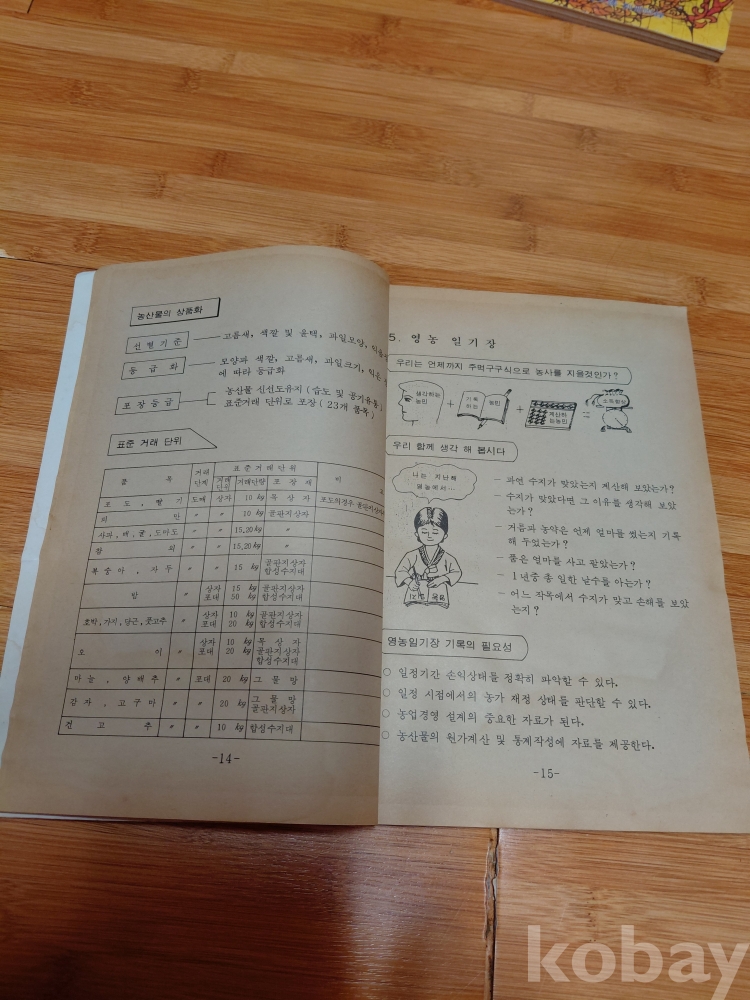 농산물의 상품화
선별기준 고름새, 색깔 및 윤택, 과일모양,
등급화 모양과 색깔, 고름새, 과일크기, 익은
에 따라 등급화
포장등급 농산물 신선도유지 (습도 및 공기유통)
표준거래 단위로 포장 (23개 품목)
표준 거래 단위
품목 거래단계 표준거래단위 비
거래단위 거래단량 포장재
포도, 딸기 도매 상자 10 kg 목상자 포도의경우 골판지상자
〃 〃 10 kg 골판지상자
사과, 배, 귤, 도마도 〃 〃 15,20kg 〃
참외 〃 〃 15,20kg 〃
복숭아, 자두 〃 〃 15 kg 골판지상자
합성수지대
밤 〃 상자 15 kg 골판지상자
포대 50 kg 합성수지대
호박, 가지, 당근, 풋고추 〃 상자 10 kg 골판지상자
포대 20 kg 합성수지대
오이 〃 상자 10 kg 목상자
포대 20 kg 골판지상자
합성수지대
마늘, 양배추 〃 포대 20 kg 그물망
감자, 고구마 〃 〃 20 kg 그물망
골판지상자
건고추 〃 〃 10 kg 합성수지대
-14-
5. 영농 일기장
우리는 언제까지 주먹구구식으로 농사를 지을것인가?
생각하는
농민
+
기록
하는
농민
+
계산하
는농민
=
소득향상
우리 함께 생각 해 봅시다
나는 지난해
영농에서…
일기장
– 과연 수지가 맞았는지 계산해 보았는가?
– 수지가 맞았다면 그 이유를 생각해 보았
는가?
– 거름과 농약은 언제 얼마를 썼는지 기록
해 두었는가?
– 품은 얼마를 사고 팔았는가?
– 1년중 총 일한 날수를 아는가?
– 어느 작목에서 수지가 맞고 손해를 보았
는지?
영농일기장 기록의 필요성
○ 일정기간 손익상태를 정확히 파악할 수 있다.
○ 일정 시점에서의 농가 재정 상태를 판단할 수 있다.
○ 농업경영 설계의 중요한 자료가 된다.
○ 농산물의 원가계산 및 통계작성에 자료를 제공한다.
-15-
kobay